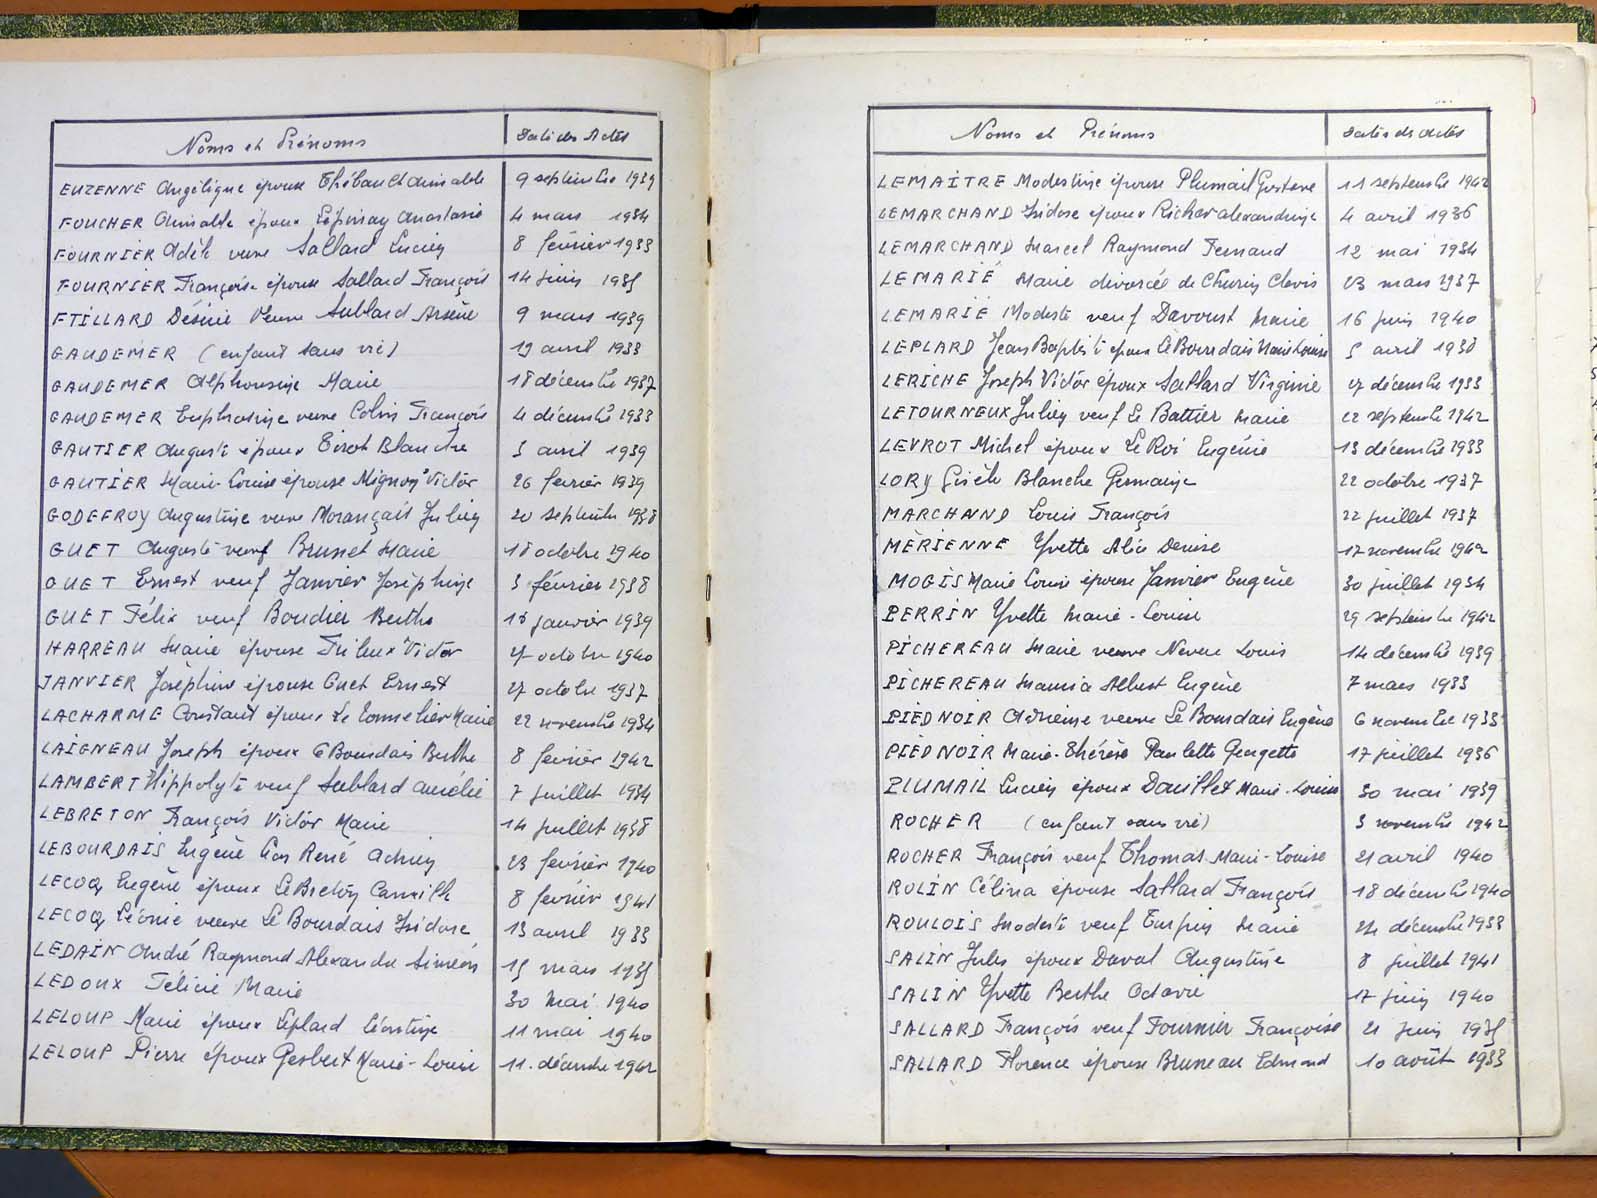 Noms et Prénoms Dates des Actes
EUZENNE Angélique épouse Thébault Aimable 9 septembre 1939
FOUCHER Aimable époux Lépinay Anastasie 4 mars 1934
FOURNIER Adèle veuve Sallard Lucien 8 février 1933
FOURNIER Françoise épouse Sallard François 14 juin 1935
FTILLARD Désirée Veuve Sablard Arsène 9 mars 1939
GAUDEMER (enfant sans vie) 19 avril 1933
GAUDEMER Alphonsine Marie 18 décembre 1937
GAUDEMER Euphrosine veuve Colin François 4 décembre 1933
GAUTIER Auguste époux Tirot Blanche 3 avril 1939
GAUTIER Marie-Louise épouse Mignon Victor 26 février 1939
GODEFROY Augustine veuve Morançais Julien 20 septembre 1938
GUET Auguste veuf Brunet Marie 18 octobre 1940
GUET Ernest veuf Janvier Joséphine 3 février 1938
GUET Félix veuf Boudier Berthe janvier 1939
HARREAU Marie épouse Victor octobre 1940
JANVIER Joséphine épouse Guet Ernest 27 octobre 1937
LACHARME Constant époux Le Tonnelier Marie 22 novembre 1934
LAIGNEAU Joseph époux Le Bourdais Berthe 8 février 1942
LAMBERT Hippolyte veuf Sablard Aurélie 7 juillet 1934
LEBRETON François Victor Marie 14 juillet 1938
LEBOURDAIS Eugène Léon René Adrien 23 février 1940
LECOQ Eugène époux Le Breton Camille 8 février 1941
LECOQ Léonie veuve Le Bourdais Isidore 13 avril 1933
LEDAIN André Raymond Alexandre Siméon 15 mars 1935
LEDOUX Félicie Marie 30 mai 1940
LELOUP Marie épouse Léplard Léontine 11 mai 1940
LELOUP Pierre époux Gesbert Marie-Louise 11 décembre 1942
Noms et Prénoms Dates des Actes
LEMAITRE Modestine épouse Plumail Gustave 11 septembre 1942
LEMARCHAND Isidore époux Richer Alexandrine 4 avril 1936
LEMARCHAND Marcel Raymond Fernand 12 mai 1934
LEMARIÉ Marie divorcée de Churin Clovis 23 mars 1937
LEMARIÉ Modeste veuf Davoust Marie 16 juin 1940
LEPLARD Jean Baptiste époux Le Bourdais Marie Louise 5 avril 1938
LERICHE Joseph Victor époux Sallard Virginie décembre 1933
LETOURNEUX Julien veuf Le Battier Marie 22 septembre 1942
LEVROT Michel époux Le Roi Eugénie 13 décembre 1933
LORY Gisèle Blanche Germaine 22 octobre 1937
MARCHAND Louis François 22 juillet 1937
MÉRIENNE Yvette Alice Denise 17 novembre 1942
MOGIS Marie Louise épouse Janvier Eugène 30 juillet 1934
PERRIN Yvette Marie-Louise 29 septembre 1942
PICHEREAU Marie veuve Neveu Louis 14 décembre 1939
PICHEREAU Maurice Albert Eugène 7 mars 1933
PIEDNOIR Adrienne veuve Le Bourdais Eugène 6 novembre 1933
PIEDNOIR Marie-Thérèse Paulette Georgette 17 juillet 1936
PLUMAIL Lucien époux Douillet Marie-Louise 30 mai 1939
ROCHER (enfant sans vie) 3 novembre 1942
ROCHER François veuf Thomas Marie-Louise 21 avril 1940
ROLIN Célina épouse Sallard François 18 décembre 1940
ROULOIS Modeste veuf Turpin Marie 24 décembre 1933
SALIN Jules époux Daval Augustine 8 juillet 1941
SALIN Yvette Berthe Octavie 17 juin 1940
SALLARD François veuf Fournier Françoise 21 juin 1935
SALLARD Florence épouse Bruneau Edmond 10 août 1933